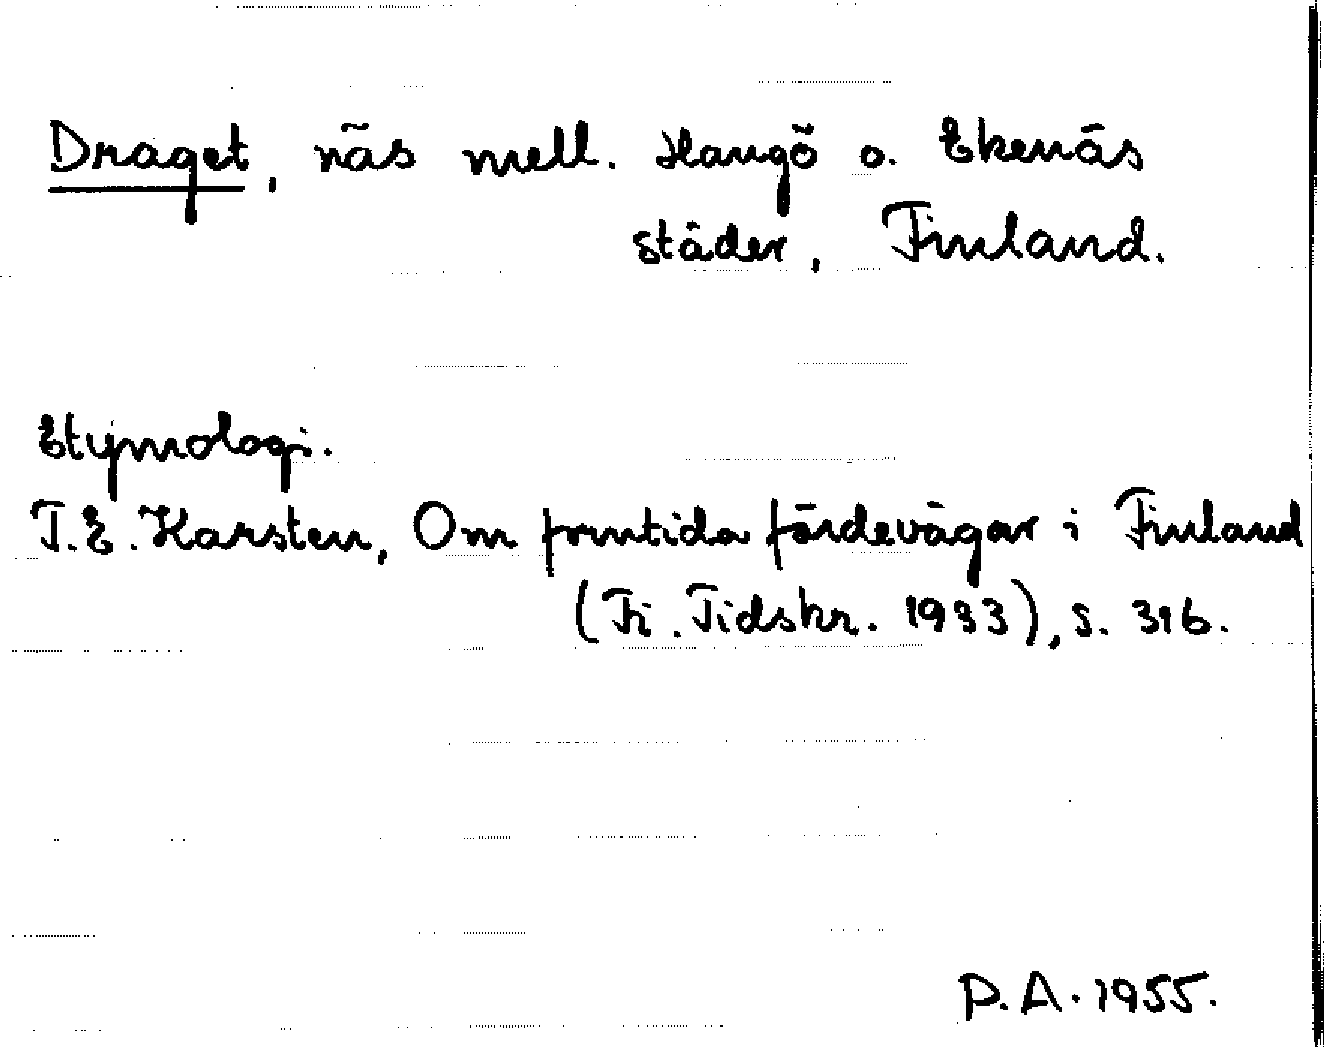 Draget, näs mell. Hangö o. Ekenäs
städer, Finland.
Etymologi.
T.E. Karsten, Om forntida färdevägar i Finland
(Fi. Tidskr. 1933), s. 316.
P.A. 1955.